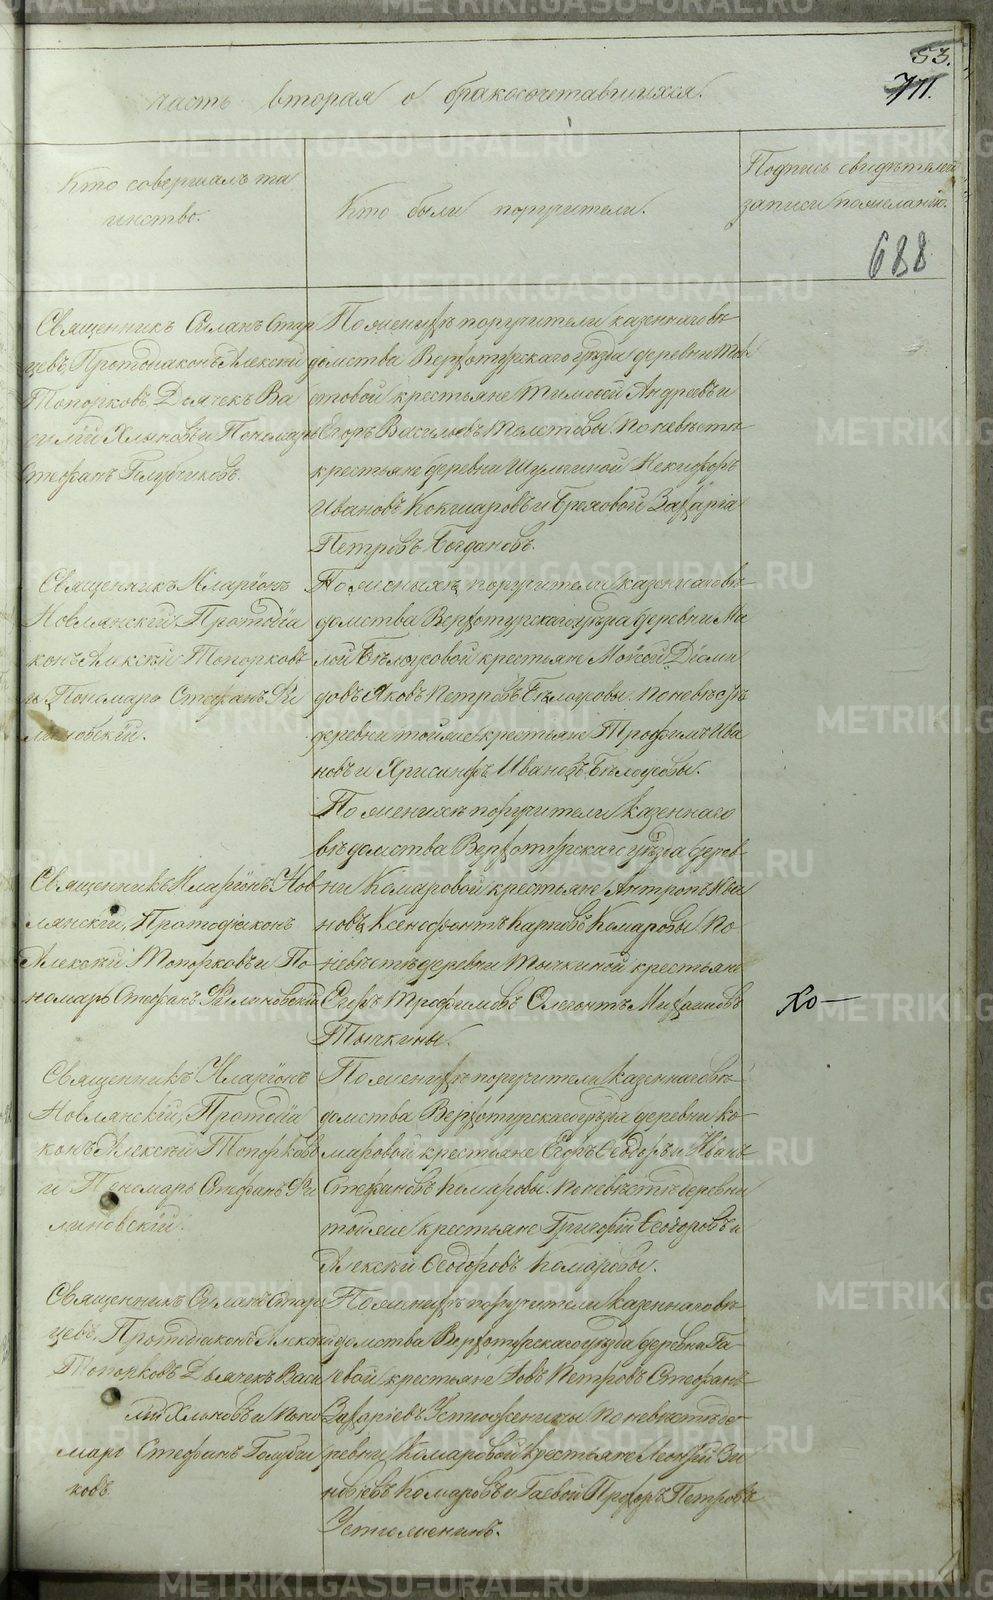 53.
711.
часть вторая о бракосочетавшихся.
Кто совершалъ та
инство.
Кто были поручители.
Подпись свидѣтелей
записи по желанію.
688
Священникъ Силанъ Стар
цевъ, Протодіаконъ Алексѣй
Топорковъ, Дьячекъ Ва
силій Хляновъ и Пономарь
Стефанъ Голубчиковъ.
По женихѣ поручители казеннаго вѣ
домства Верхотурскаго уѣзда деревни
стовой крестьяне Тимофей Андреевъ и
Егоръ Васильевъ Толстовы. По невѣстѣ
крестьяне деревни Шумкиной Никифоръ
Ивановъ Кокшаровъ и Бреховой Захаръ
Петровъ Богдановъ.
Священникъ Иларіонъ
Новлянскій, Протодіа
конъ Алексѣй Топорковъ
и Пономарь Стефанъ Фи
линовскій.
По женихѣ поручители казеннаго вѣ
домства Верхотурскаго уѣзда деревни Ма
лой Бѣлоусовой крестьяне Мойсей Діоми
довъ Яковъ Петровъ Бѣлоусовы. По невѣстѣ
деревни той же крестьяне Трофимъ Ива
новъ и Хрисанфъ Ивановъ Бѣлоусовы.
Священникъ Иларіонъ Нов
лянскій, Протодіаконъ
Алексѣй Топорковъ и По
номарь Стефанъ Филиновскій
По женихѣ поручители казеннаго
вѣдомства Верхотурскаго уѣзда дерев
ни Комаровой крестьяне Антропъ Ива
новъ, Ксенофонтъ Карповъ Комаровы. По
невѣстѣ деревни Тычкиной крестьяне
Егоръ Трофимовъ Михайловъ
Тычкины.
Хо
Священникъ Иларіонъ
Новлянскій, Протодіа
конъ Алексѣй Топорковъ
и Пономарь Стефанъ Фи
линовскій.
По женихѣ поручители казеннаго вѣ
домства Верхотурскаго уѣзда деревни Ко
маровой крестьяне Егоръ Ѳедоровъ и Иванъ
Стефановъ Комаровы. По невѣстѣ деревни
той же крестьяне Григорій Ѳедоровъ и
Алексѣй Ѳедоровъ Комаровы.
Священникъ Силанъ Стар
цевъ, Протодіаконъ Алексѣй
Топорковъ Дьячекъ Васи
лій Хляновъ и Поно
марь Стефанъ Голубчи
ковъ.
По женихѣ поручители казеннаго вѣ
домства Верхотурскаго уѣзда деревни Га
евой крестьяне Іовъ Петровъ Стефанъ
Захаріевъ Устюженины по невѣстѣ де
ревни Комаровой крестьяне Леонтій Зи
новіевъ Комаровъ и Гаевой Прохоръ Петровъ
Устюженинъ.
METRIKI.GASO-URAL.RU